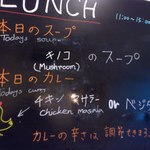 LUNCH
11:00~15:00
本日のスープ
Todays soup
キノコ
(Mushroom)
のスープ
本日のカレー
Todays curry
チキン マサラー
chicken masala
or ベジタ
カレーの辛さは調整できます。